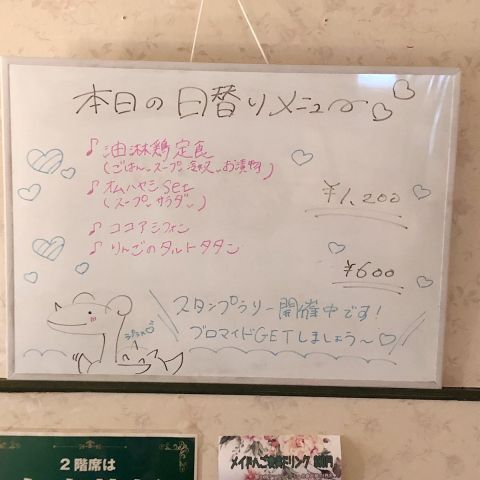 本日の日替りメニュー
♪油淋鶏定食
(ごはん、スープ、お漬物)
♪オムハヤシset
(スープ、サラダ、)
¥1,200
♪ココアシフォン
♪りんごのタルトタタン
¥600
スタンプラリー開催中です!
ブロマイドGETしましょう〜♡
2階席は
メイドへご褒美ドリンク